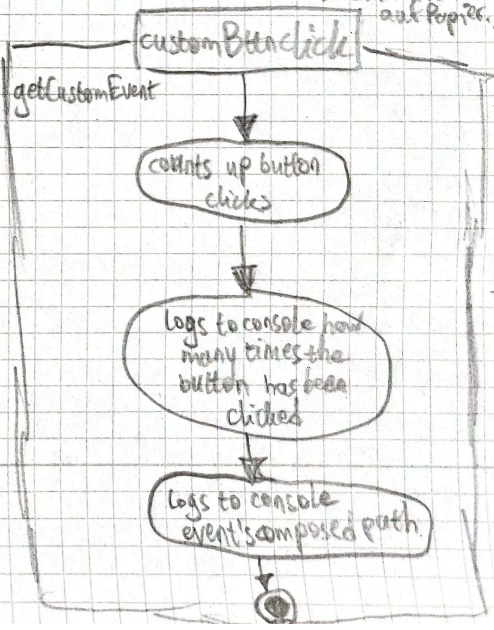 auf Papier.
customBtnclick
getCustomEvent
counts up button
clicks
Logs to console how
many times the
button has been
clicked
Logs to console
event's composed path.